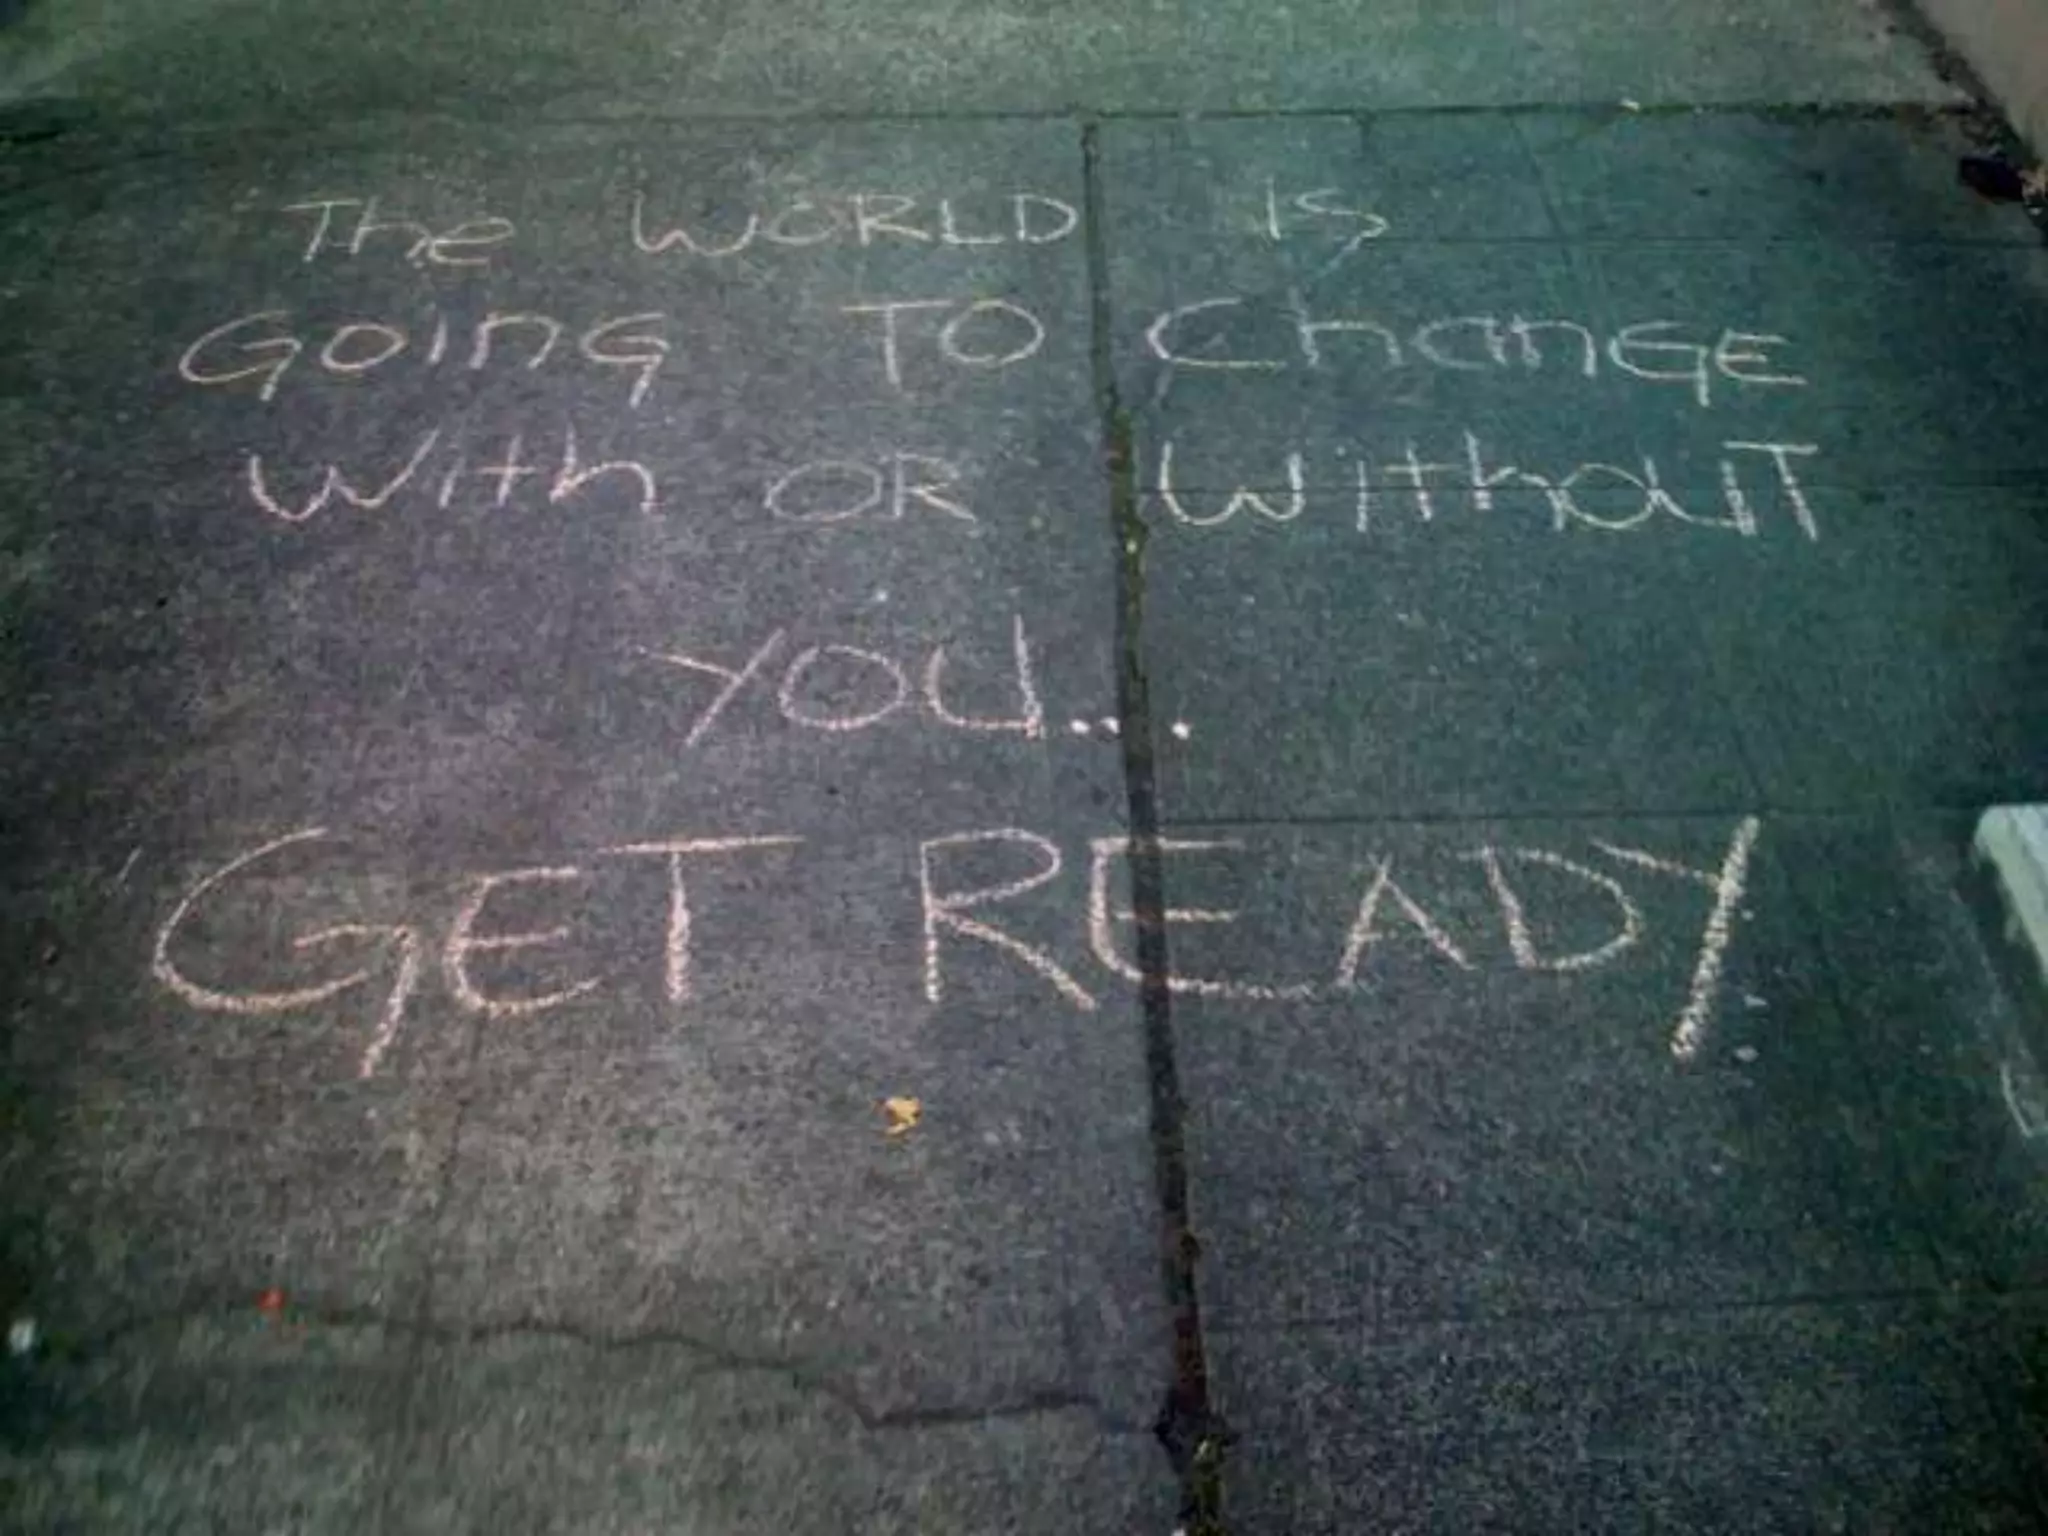 The WORLD IS
GOING TO ChanGE
With OR WithouT
YOU...
GET READY